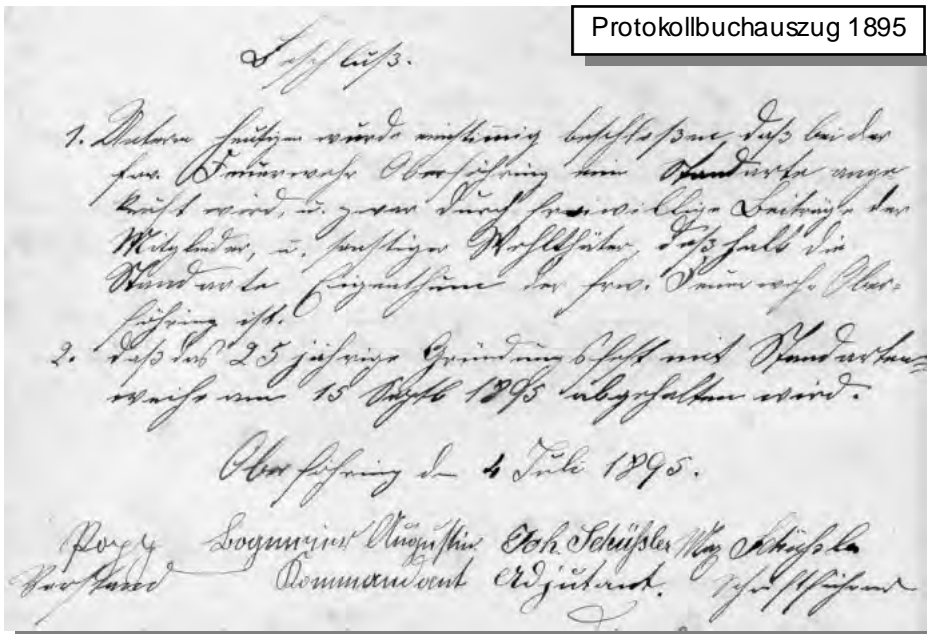 Protokollbuchauszug 1895
Beschluß.
1. Unterm Heutigen wurde einstimig beschloßen, daß bei der
frw. Feuerwehr Oberföhring eine Standarte ange
kauft wird, u. zwar durch freiwillige Beiträge der
Mitglieder, u. sonstiger Wohlthäter, daß halb die
Standarte Eigenthum der frw. Feuerwehr Ober=
föhring ist.
2. daß das 25 jährige Gründungsfest mit Standarten=
weihe am 15 Septb 1895 abgehalten wird.
Oberföhring d 4 Juli 1895.
Augustin Joh. Schüßler Max Schüßler
Vorstand Kommandant Adjutant. Schriftführer